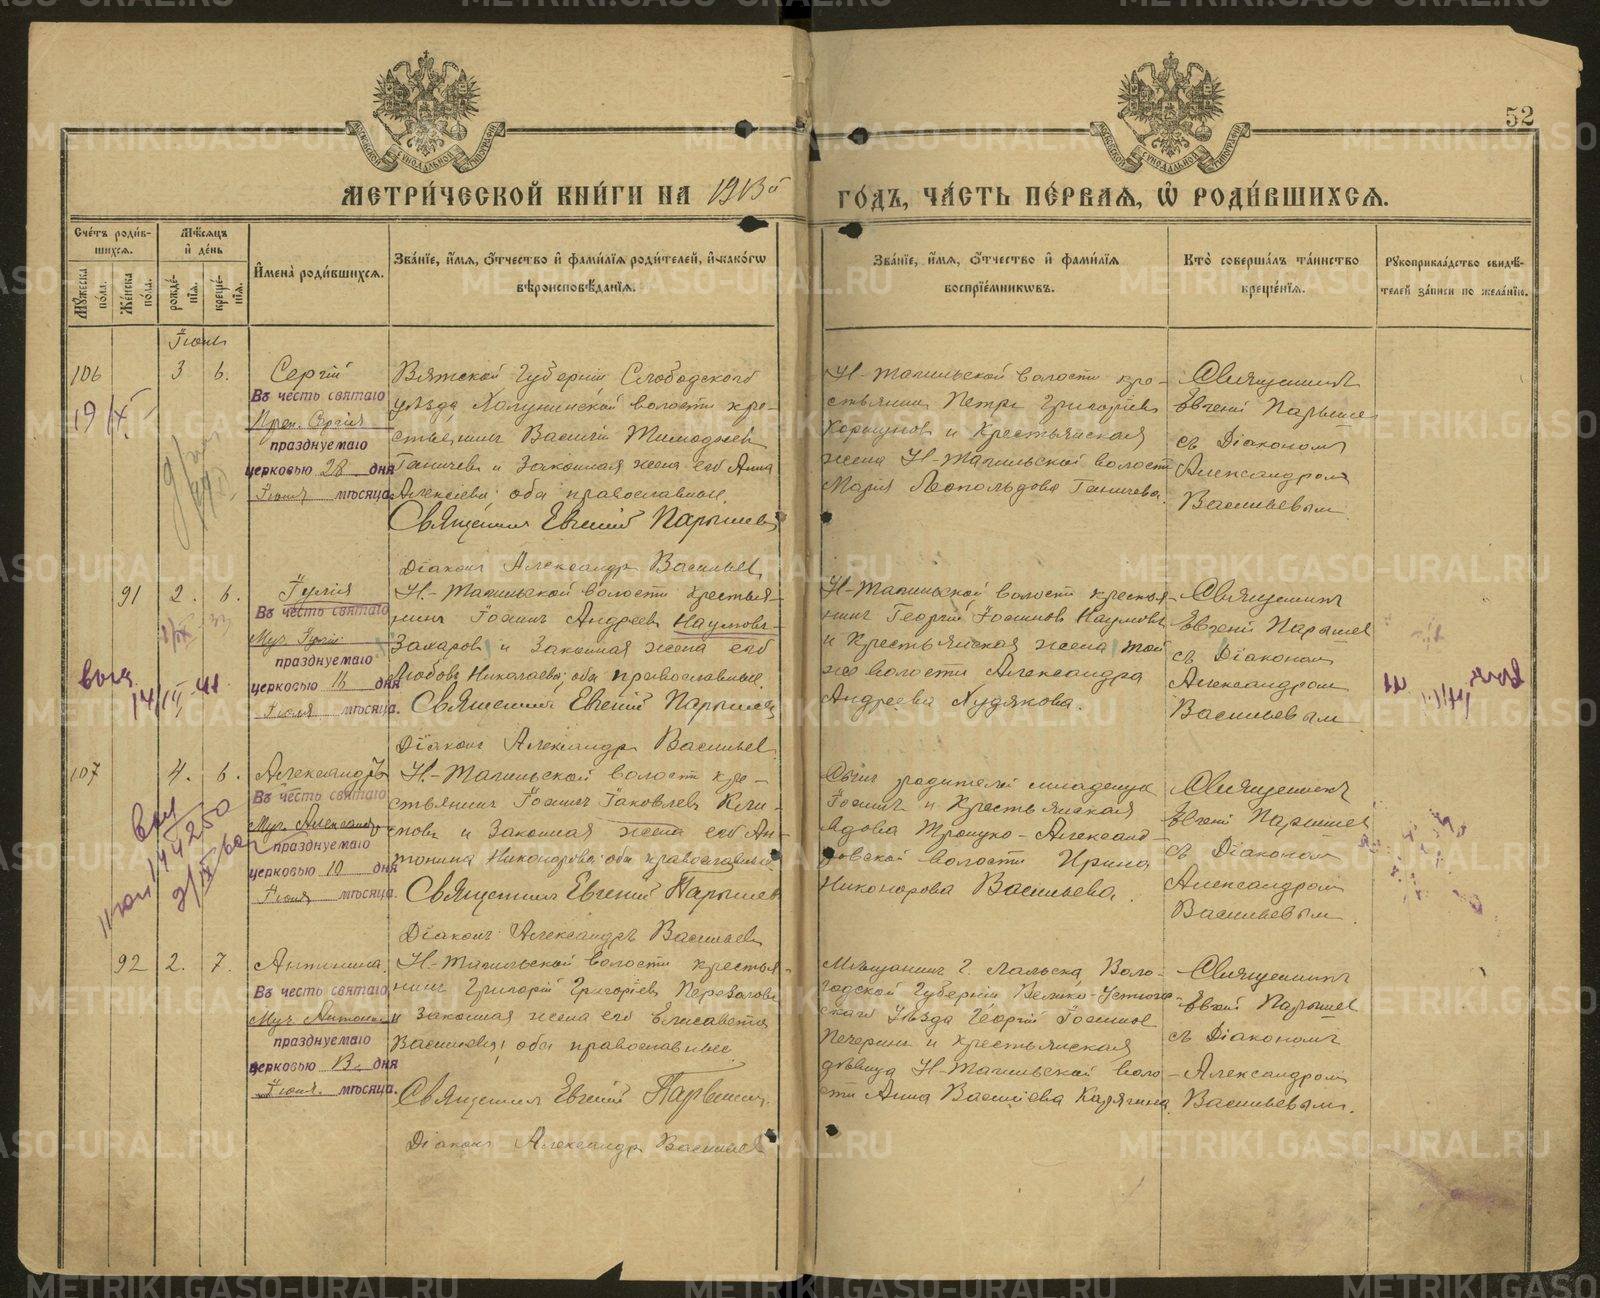 52
МЕТРИ́ЧЕСКОЙ КНИ́ГИ НА 1913й ГО́ДЪ, ЧА́СТЬ ПЕ́РВАЯ, Ѡ҆ РОДИ́ВШИХСЯ.
Сче́тъ роди́вшихся.
Му́жеска по́ла.
Же́нска по́ла.
Мѣ́сяцъ и҆ де́нь
рожде́нїя.
креще́нїя.
И҆мена̀ роди́вшихся.
Зва́нїе, и҆́мя, ѻ҆́тчество и҆ фами́лїя роди́телей, и҆ како́гѡ вѣроисповѣ́данїя.
Зва́нїе, и҆́мя, ѻ҆́тчество и҆ фами́лїя воспрїе́мникѡвъ.
Кто̀ соверша́лъ та́инство креще́нїя.
Рукоприкла́дство свидѣ́телей за́писи по жела́нїю.
Іюнь
106
3
6.
Сергій
Въ честь святаго
Преп. Сергія
празднуемаго
церковью 28 дня
Іюня мѣсяца.
Вятской Губерніи Слободского
уѣзда Холунинской волости кре-
стьянинъ Василій Тимофеев
Ганичевъ и Законная жена его Анна
Алексіева; оба православные.
Священник Евгеній Парышев
Діаконъ Александръ Васильев
Н-Тагильской волости кре-
стьянинъ Петръ Григоріевъ
Коршунов и Крестьянская
жена Н-Тагильской волости
Марія Леопольдова Ганичева.
Священникъ
Евгеній Парышев
съ Діакономъ
Александромъ
Васильевымъ
91
2.
6.
Іулія
Въ честь святаго
Муч. Іуліи
празднуемаго
церковью 16 дня
Іюля мѣсяца.
Н-Тагильской волости крестья-
нинъ Іоаннъ Андреев Наумовъ-
Захаров и Законная жена его
Любовь Николаева; оба православные.
Священникъ Евгеній Парышев
Діаконъ Александръ Васильев
Н-Тагильской волости крестья-
нинъ Георгій Іоанновъ Наумовъ
и Крестьянская жена той
же волости Александра
Андреева Худякова.
Священникъ
Евгеній Парышев
съ Діакономъ
Александромъ
Васильевым
14/IV-41
107
4.
6.
Александръ
Въ честь святаго
Муч. Александра
празднуемаго
церковью 10 дня
Іюня мѣсяца.
Н-Тагильской волости кре-
стьянинъ Іоаннъ Іаковлевъ
и Законная жена его Ан-
тонина Никонорова; оба православные
Священникъ Евгеній Парышев
Діаконъ Александръ Васильев
Сынъ родителей младенца
Іоаннъ и Крестьянская
вдова Троицко-Александ-
ровской волости Ирина
Никонорова Васильева.
Священникъ
Евгеній Парышев
съ Діакономъ
Александромъ
Васильевым
92
2.
7.
Антонина.
Въ честь святаго
Муч. Антонины
празднуемаго
церковью 13. дня
Іюня мѣсяца.
Н-Тагильской волости крестья-
нинъ Григорій Григоріевъ Перевалов
и Законная жена его Елисавета
Васильева; оба православные.
Священник Евгеній Парышев.
Діаконъ Александръ Васильев
Мѣщанинъ г. Лальска, Воло-
годской Губерніи Велико-Устюг-
скаго Уѣзда Георгій Іоаннов
Печерин и Крестьянская
дѣвица Н-Тагильской воло-
сти Анна Васильева Калягина
Священникъ
Евгений Парышев
съ Діакономъ
Александромъ
Васильевымъ.
METRIKI.GASO-URAL.RU